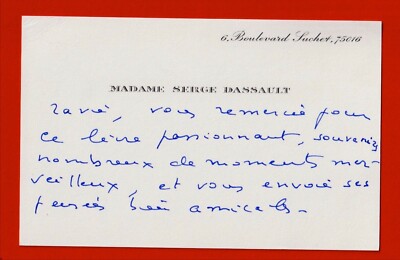 6, Boulevard Suchet, 75016
MADAME SERGE DASSAULT
ravie, vous remercie pour
ce livre passionnant, souvenirs
nombreux de moments mer-
veilleux, et vous envoie ses
pensées bien amicales.